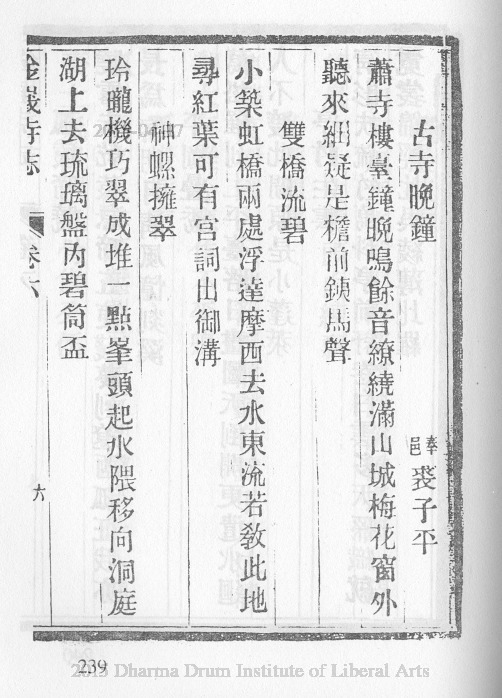 古寺晚鐘
奉邑 裘子平
蕭寺樓臺鐘晚鳴餘音繚繞滿山城梅花窗外
聽來細疑是檐前鐵馬聲
雙橋流碧
小築虹橋兩處浮達摩西去水東流若教此地
尋紅葉可有宮詞出御溝
神螺擁翠
玲瓏機巧翠成堆一點峯頭起水隈移向洞庭
湖上去琉璃盤內碧筒盃
金峩寺志
卷六
六
239
2013 Dharma Drum Institute of Liberal Arts